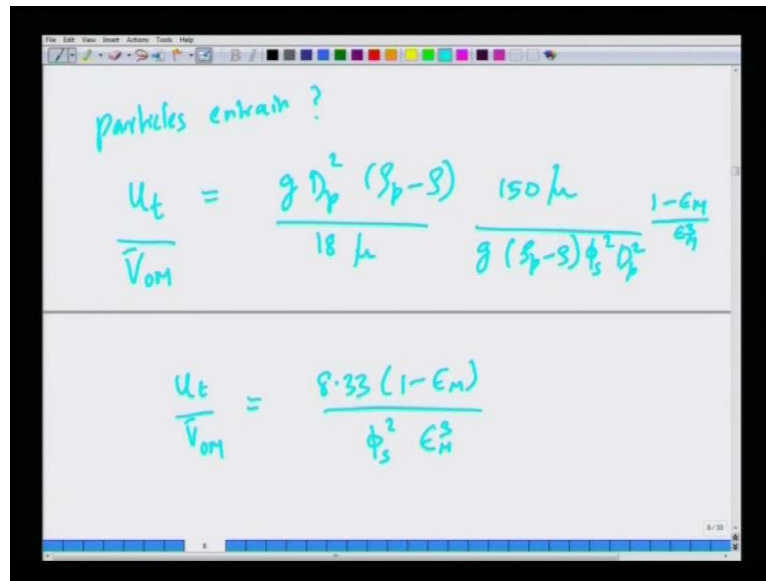 File Edit View Insert Actions Tools Help
particles entrain ?
u_t / V̄_OM = g D_p^2 (ρ_p-ρ) / 18 μ 150 μ / g (ρ_p-ρ) ϕ_s^2 D_p^2 1-ϵ_M / ϵ_M^3
u_t / V̄_OM = 8.33 (1-ϵ_M) / ϕ_s^2 ϵ_M^3
8